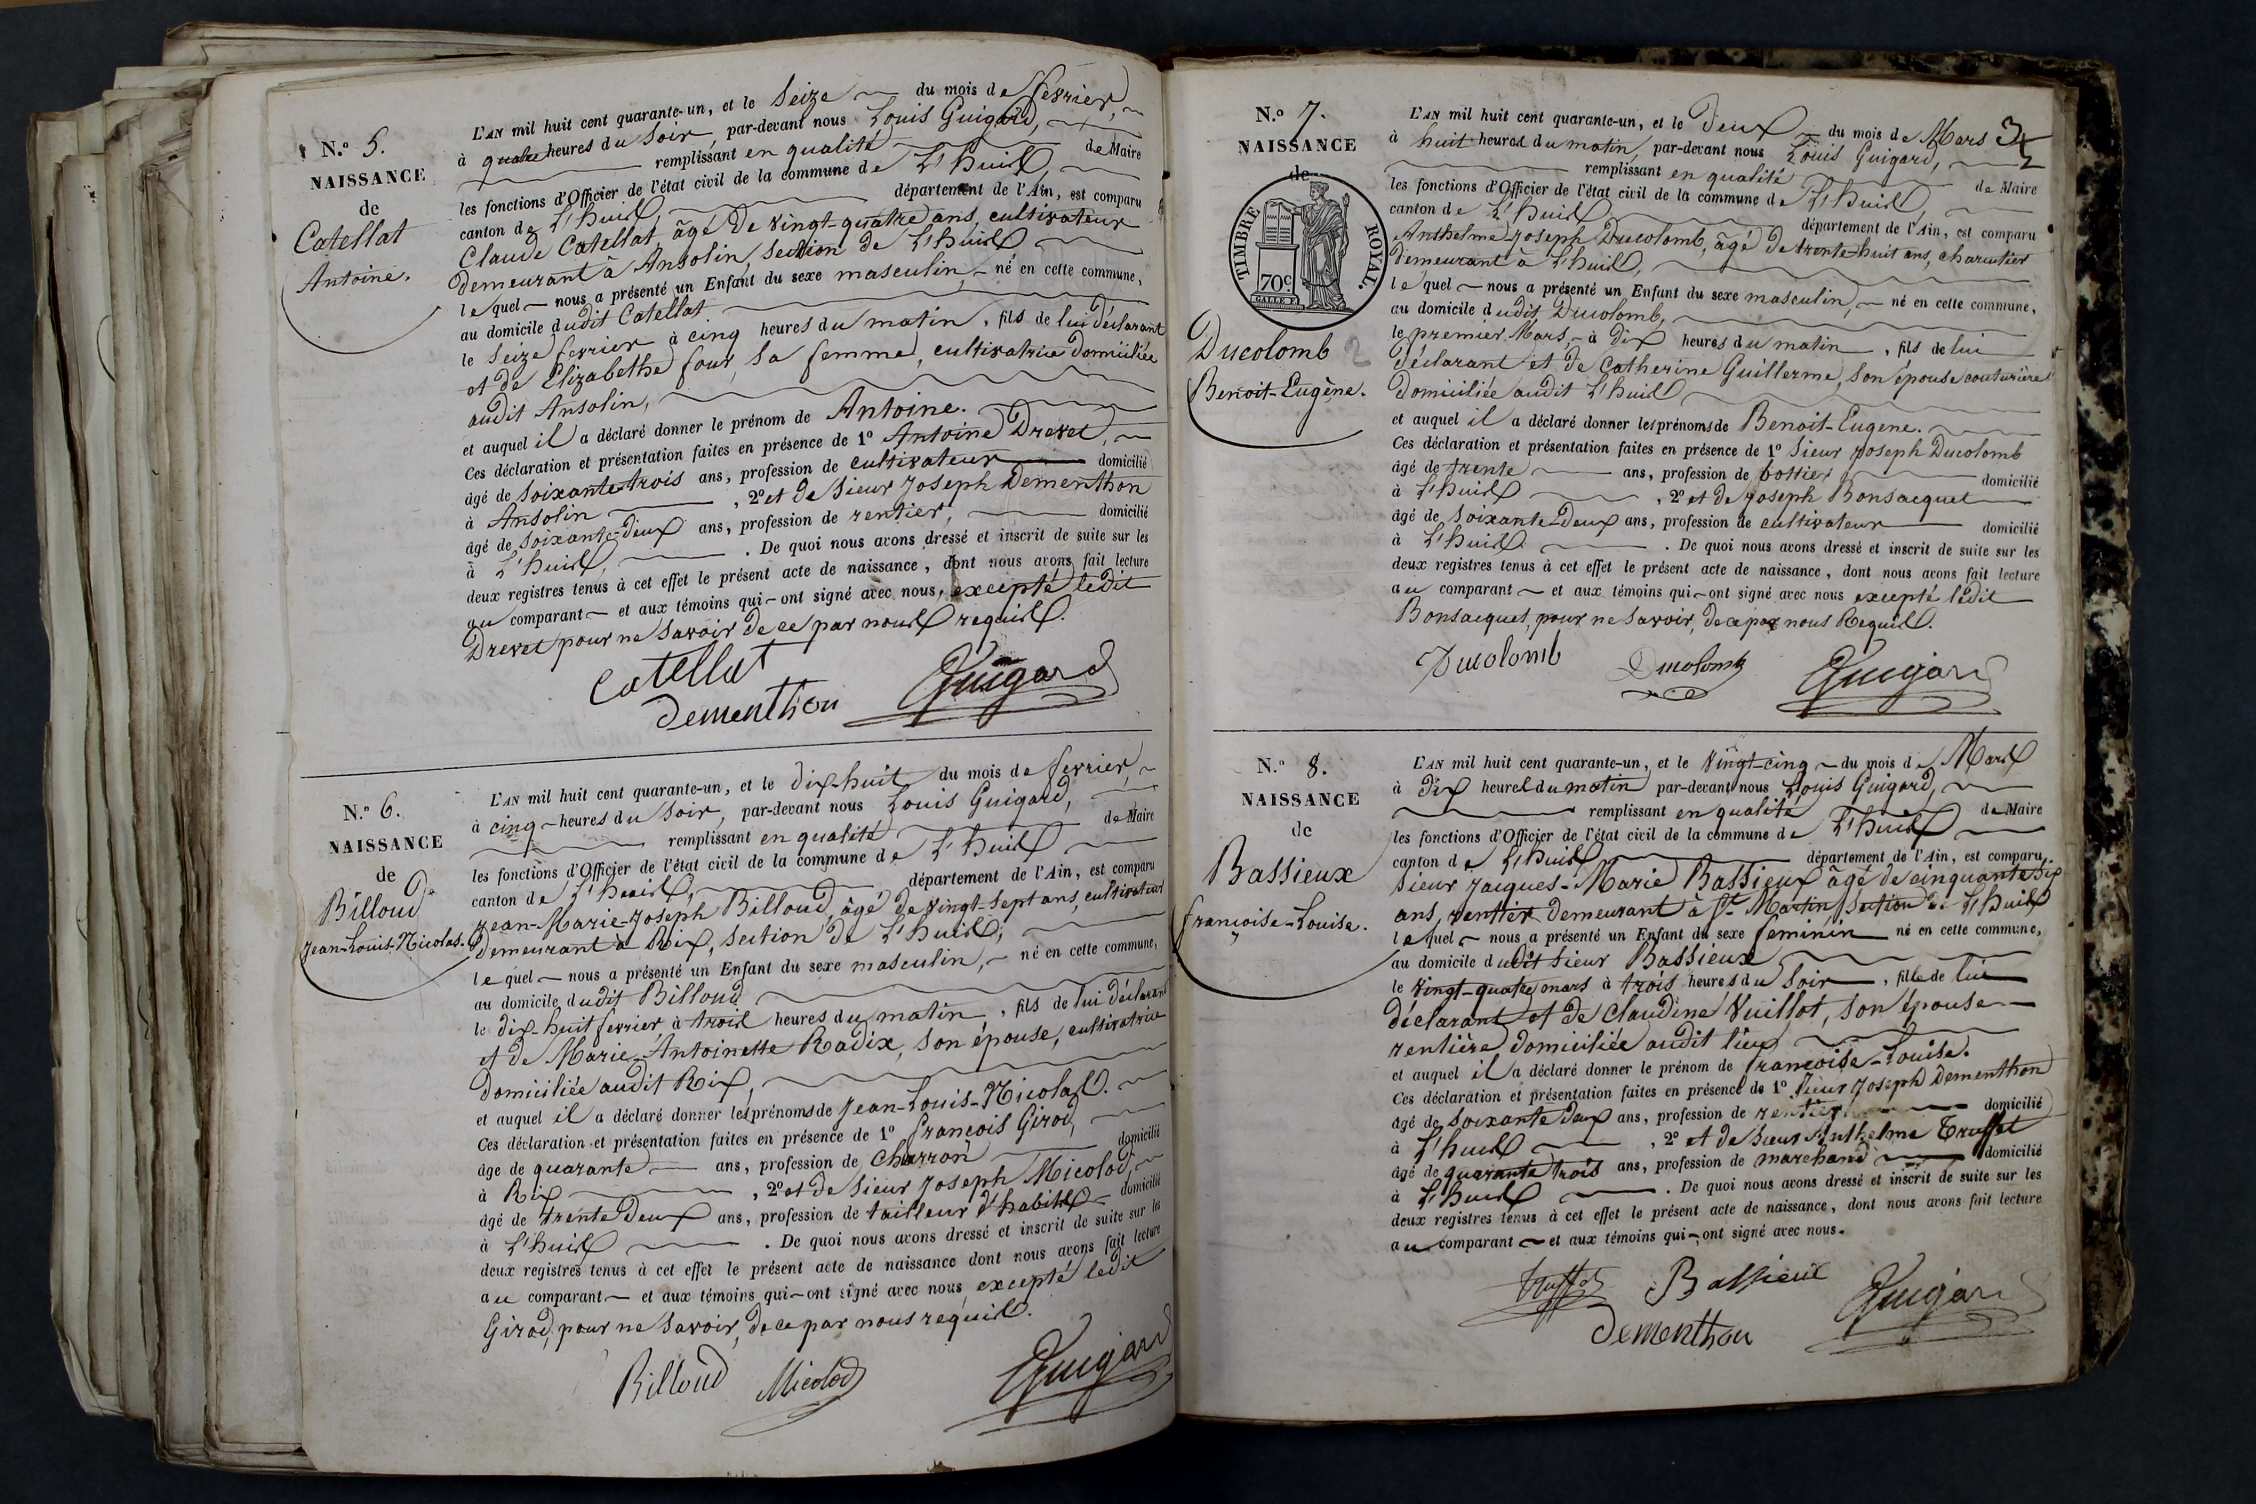 N.º 5.
NAISSANCE
de
Catellat
Antoine.
L'AN mil huit cent quarante-un, et le Seize du mois de fevrier,
à quatre heures du Soir, par-devant nous Louis Guigard,
remplissant en qualité de Maire
les fonctions d'Officier de l'état civil de la commune de L'huis,
canton de L'huis, département de l'Ain, est comparu
Claude Catellat âgé de vingt-quatre ans, cultivateur
demeurant à Ansolin, section de L'huis
lequel nous a présenté un Enfant du sexe masculin, né en cette commune,
au domicile dudit Catellat.
le Seize fevrier à cinq heures du matin, fils de lui déclarant
et de Elizabethe four, sa femme, cultivatrice domiciliée
audit Ansolin,
et auquel il a déclaré donner le prénom de Antoine.
Ces déclaration et présentation faites en présence de 1º Antoine Drevet,
âgé de soixante-trois ans, profession de cultivateur domicilié
à Ansolin, 2º et de Sieur Joseph Dementhon
âgé de soixante-deux ans, profession de rentier, domicilié
à L'huis, . De quoi nous avons dressé et inscrit de suite sur les
deux registres tenus à cet effet le présent acte de naissance, dont nous avons fait lecture
au comparant et aux témoins qui ont signé avec nous, excepté ledit
Drevet pour ne savoir de ce par nous requis.
Catellat
Dementhon
Guigard
N.º 6.
NAISSANCE
de
Billoud
Jean-Louis-Nicolas.
L'AN mil huit cent quarante-un, et le dix-huit du mois de fevrier,
à cinq heures du Soir, par-devant nous Louis Guigard,
remplissant en qualité de Maire
les fonctions d'Officier de l'état civil de la commune de L'huis
canton de L'huis, département de l'Ain, est comparu
Jean-Marie-Joseph Billoud, âgé de vingt-sept ans, cultivateur
demeurant à Rix, section de L'huis,
lequel nous a présenté un Enfant du sexe masculin, né en cette commune,
au domicile dudit Billoud
le dix-huit fevrier à trois heures du matin, fils de lui déclarant
et de Marie-Antoinette Radix, son épouse, cultivatrice
domiciliée audit Rix,
et auquel il a déclaré donner les prénoms de Jean-Louis-Nicolas.
Ces déclaration et présentation faites en présence de 1º françois Girod,
âgé de quarante ans, profession de charron domicilié
à Rix, 2º et de Sieur Joseph Micolod,
âgé de trente deux ans, profession de tailleur d'habits domicilié
à L'huis . De quoi nous avons dressé et inscrit de suite sur les
deux registres tenus à cet effet le présent acte de naissance dont nous avons fait lecture
au comparant et aux témoins qui ont signé avec nous excepté ledit
Girod, pour ne savoir, de ce par nous requis.
Billoud
Micolod
Guigard
N.º 7.
NAISSANCE
de
TIMBRE ROYAL.
70 c.
Ducolomb 2
Benoit-Eugène.
L'AN mil huit cent quarante-un, et le deux du mois de Mars 3
à huit heures du matin, par-devant nous Louis Guigard,
remplissant en qualité de Maire
les fonctions d'Officier de l'état civil de la commune de L'huis,
canton de L'huis département de l'Ain, est comparu
Anthelme-Joseph Ducolomb, âgé de trente-huit ans, charcutier
demeurant à L'huis,
lequel nous a présenté un Enfant du sexe masculin, né en cette commune,
au domicile dudit Ducolomb,
le premier Mars, à dix heures du matin, fils de lui
déclarant et de Catherine Guillerme, son épouse couturière
domiciliée audit L'huis
et auquel il a déclaré donner les prénoms de Benoit-Eugene.
Ces déclaration et présentation faites en présence de 1º Sieur Joseph Ducolomb
âgé de trente ans, profession de bottier domicilié
à L'huis, 2º et de Joseph Bonsacquet
âgé de soixante-deux ans, profession de cultivateur domicilié
à L'huis . De quoi nous avons dressé et inscrit de suite sur les
deux registres tenus à cet effet le présent acte de naissance, dont nous avons fait lecture
au comparant et aux témoins qui ont signé avec nous excepté ledit
Bonsacquet, pour ne savoir, de ce par nous Requis.
Ducolomb
Ducolomb
Guigard
N.º 8.
NAISSANCE
de
Bassieux
françoise-Louise.
L'AN mil huit cent quarante-un, et le vingt-cinq du mois de Mars
à dix heures du matin par-devant nous Louis Guigard,
remplissant en qualité de Maire
les fonctions d'Officier de l'état civil de la commune de L'huis
canton de L'huis département de l'Ain, est comparu
Sieur Jacques-Marie Bassieux âgé de cinquante six
ans, rentier demeurant à St Martin section de L'huis
lequel nous a présenté un Enfant du sexe feminin né en cette commune,
au domicile dudit sieur Bassieux
le vingt-quatre mars à trois heures du soir, fille de lui
déclarant et de Claudine Vuillot, son épouse
rentière domiciliée audit lieu
et auquel il a déclaré donner le prénom de françoise-Louise.
Ces déclaration et présentation faites en présence de 1º Sieur Joseph Dementhon
âgé de soixante deux ans, profession de rentier domicilié
à L'huis, 2º et de Sieur Anthelme Truffet
âgé de quarante trois ans, profession de marchand domicilié
à L'huis . De quoi nous avons dressé et inscrit de suite sur les
deux registres tenus à cet effet le présent acte de naissance, dont nous avons fait lecture
au comparant et aux témoins qui ont signé avec nous.
Truffet
Bassieux
Guigard
Dementhon